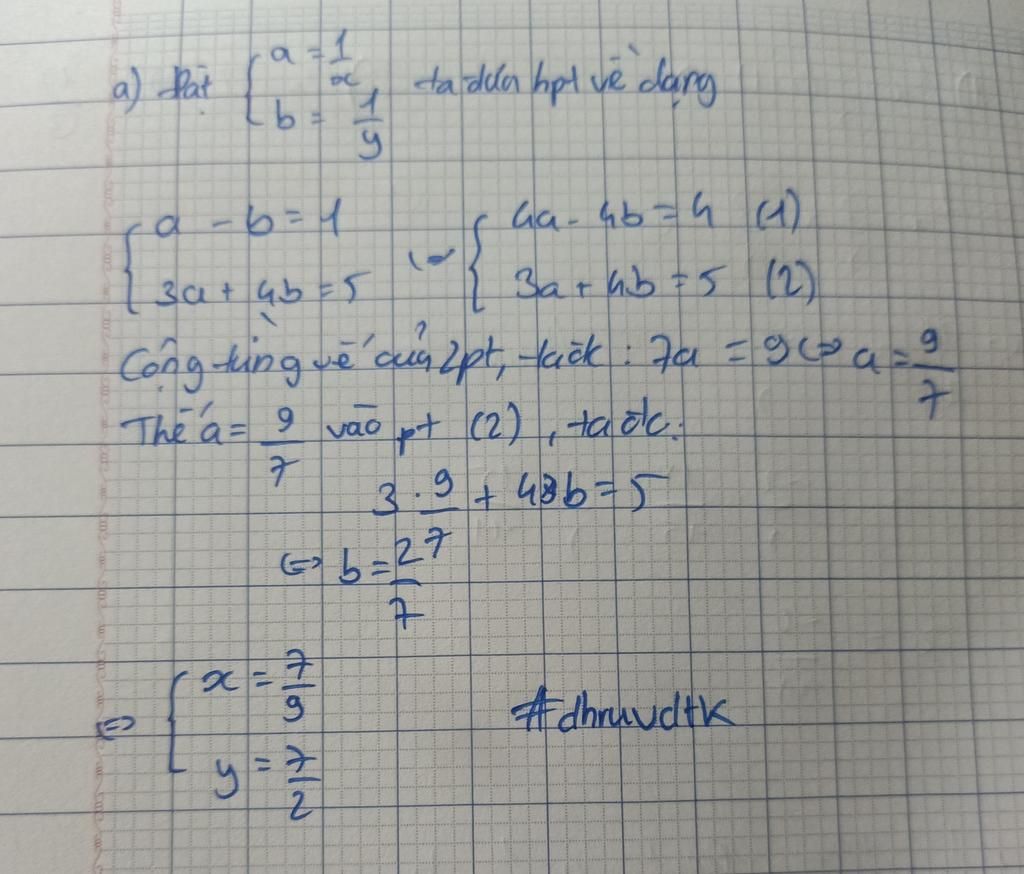 a) Đặt { a = 1/x
b = 1/y ta đưa hpt về dạng
{ a - b = 1
3a + 4b = 5 <=> { 4a - 4b = 4 (1)
3a + 4b = 5 (2)
Cộng từng vế của 2pt, ta đc : 7a = 9 <=> a = 9/7
Thế a = 9/7 vào pt (2), ta đc.
3 . 9/7 + 4b = 5
<=> b = 2/7
=> { x = 7/9
y = 7/2
#dhruvdtk